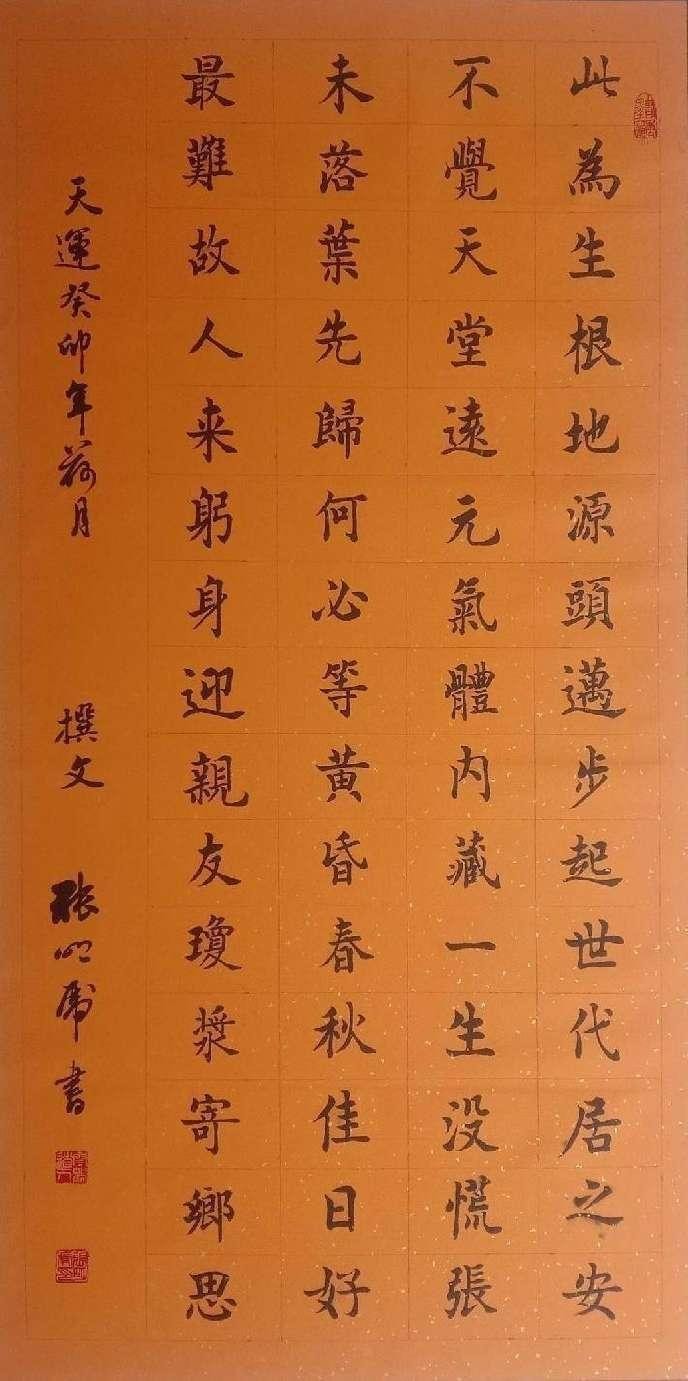 此為生根地源頭邁步起世代居之安
不覺天堂遠元氣體内藏一生没慌張
未落葉先歸何必等黄昏春秋佳日好
最難故人来躬身迎親友瓊漿寄鄉思
天運癸卯年荷月 撰文 張心甯書